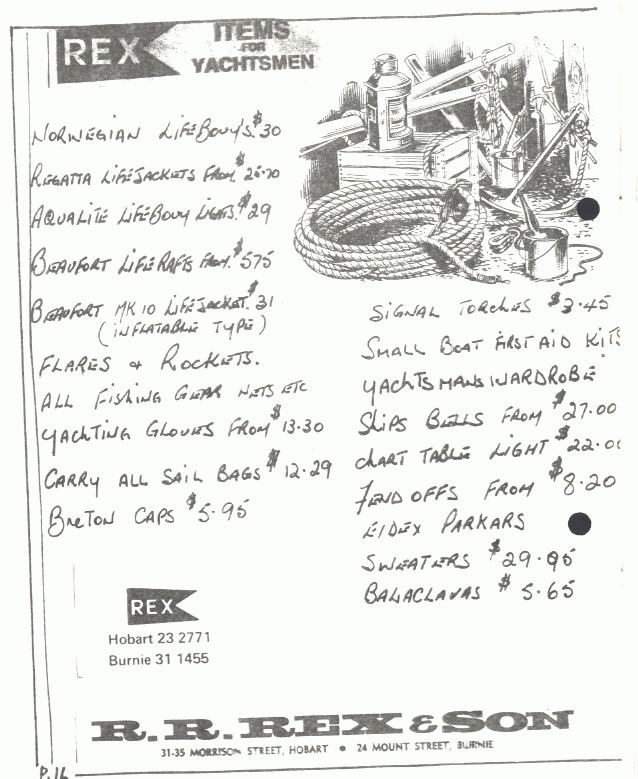 REX
ITEMS
FOR
YACHTSMEN
NORWEGIAN LIFEBOUY'S. $30
REGATTA LIFEJACKETS FROM. $
AQUALITE LIFEBOUY LIGHTS. $29
BEAUFORT LIFERAFTS FROM. $575
BEAUFORT MK 10 LIFEJACKET. $31
(INFLATABLE TYPE)
FLARES & ROCKETS.
ALL FISHING GEAR NETS ETC
YACHTING GLOVES FROM $13.30
CARRY ALL SAIL BAGS $12.29
BRETON CAPS $5.95
SIGNAL TORCHES $3.45
SMALL BOAT FIRST AID KITS
YACHTSMANS WARDROBE
SHIPS BELLS FROM $27.00
CHART TABLE LIGHT $22.00
FEND OFFS FROM $8.20
EIDEX PARKARS
SWEATERS $29.95
BALACLAVAS $5.65
REX
Hobart 23 2771
Burnie 31 1455
R.R.REX & SON
31-35 MORRISON STREET, HOBART ● 24 MOUNT STREET, BURNIE
P.16